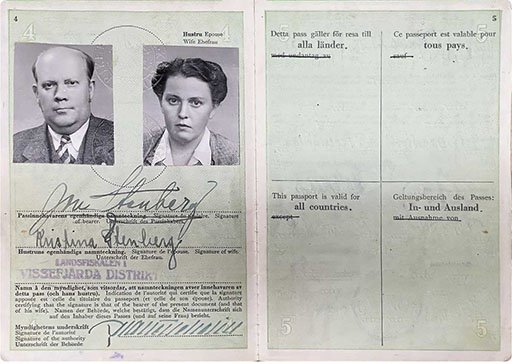 4
4 4
Hustru Epouse
Wife Ehefrau
Stenberg
Passinnehavarens egenhändiga namnteckning. Signature du porteur. Signature
of bearer. Unterschrift des Passinhabers.
Kristina Stenberg
Hustruns egenhändiga namnteckning. Signature de l'épouse. Signature of wife.
Unterschrift der Ehefrau.
LANDSFISKALEN I
VISSEFJÄRDA DISTRIKT
Namn å den myndighet, som vitsordar, att namnteckningen avser innehavaren av
detta pass (och hans hustru). Indication de l'autorité qui certifie que la signature
apposée est celle du titulaire du passeport (et celle de son épouse). Authority
certifying that the signature is that of the bearer of the present document (and that
of his wife). Namen der Behörde, welche bestätigt, dass die Namenunterschrift sich
auf den Inhaber dieses Passes (und seine Frau) bezieht.
Myndighetens underskrift
Signature de l'autorité
Signature of the authority
Unterschrift der Behörde
5
Detta pass gäller för resa till
alla länder.
med undantag av
Ce passeport est valable pour
tous pays.
sauf
5
This passport is valid for
all countries.
except
Geltungsbereich des Passes:
In- und Ausland.
mit Ausnahme von
5 5